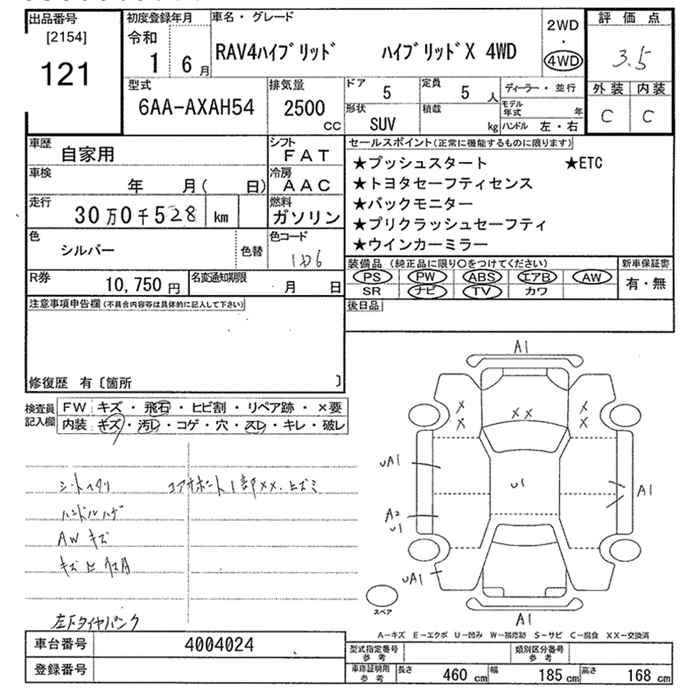 出品番号
[2154]
121
初度登録年月
令和
1 6 月
車名・グレード
RAV4ハイブリッド ハイブリッドX 4WD
2WD
・
4WD
評価点
3.5
外装 内装
C C
型式
6AA-AXAH54
排気量
2500
cc
ドア
5
定員
5 人
形状
SUV
積載
kg
ディーラー・並行
モデル年式 年
ハンドル 左・右
車歴
自家用
シフト
FAT
車検
年 月( 日)
冷房
AAC
走行
30万0千528 km
燃料
ガソリン
色
シルバー
色替
色コード
1D6
R券
10,750 円
名変通知期限
月 日
セールスポイント(正常に機能するものに限ります)
★プッシュスタート ★ETC
★トヨタセーフティセンス
★バックモニター
★プリクラッシュセーフティ
★ウインカーミラー
装備品 (純正品に限り○をつけてください)
PS PW ABS エアB AW
SR ナビ TV カワ
新車保証書
有・無
後日品
注意事項申告欄(不具合内容等は具体的に記入して下さい)
修復歴 有〔箇所 〕
検査員記入欄
FW キズ・飛石・ヒビ割・リペア跡・×要
内装 キズ・汚レ・コゲ・穴・スレ・キレ・破レ
シートヘタリ
ハンドルハゲ
AWキズ
左フタイヤパンク
コアサポート1部XX.ヒズミ
A1
X X
X X
X X
UA1
U1
A1
A2
U1
UA1
A1
スペア
A－キズ E－エクボ U－凹み W－補修跡 S－サビ C－腐食 XX－交換済
車台番号 4004024
登録番号
型式指定番号
参考
類別区分番号
参考
車庫証明用
参考
長さ 460 cm 幅 185 cm 高さ 168 cm